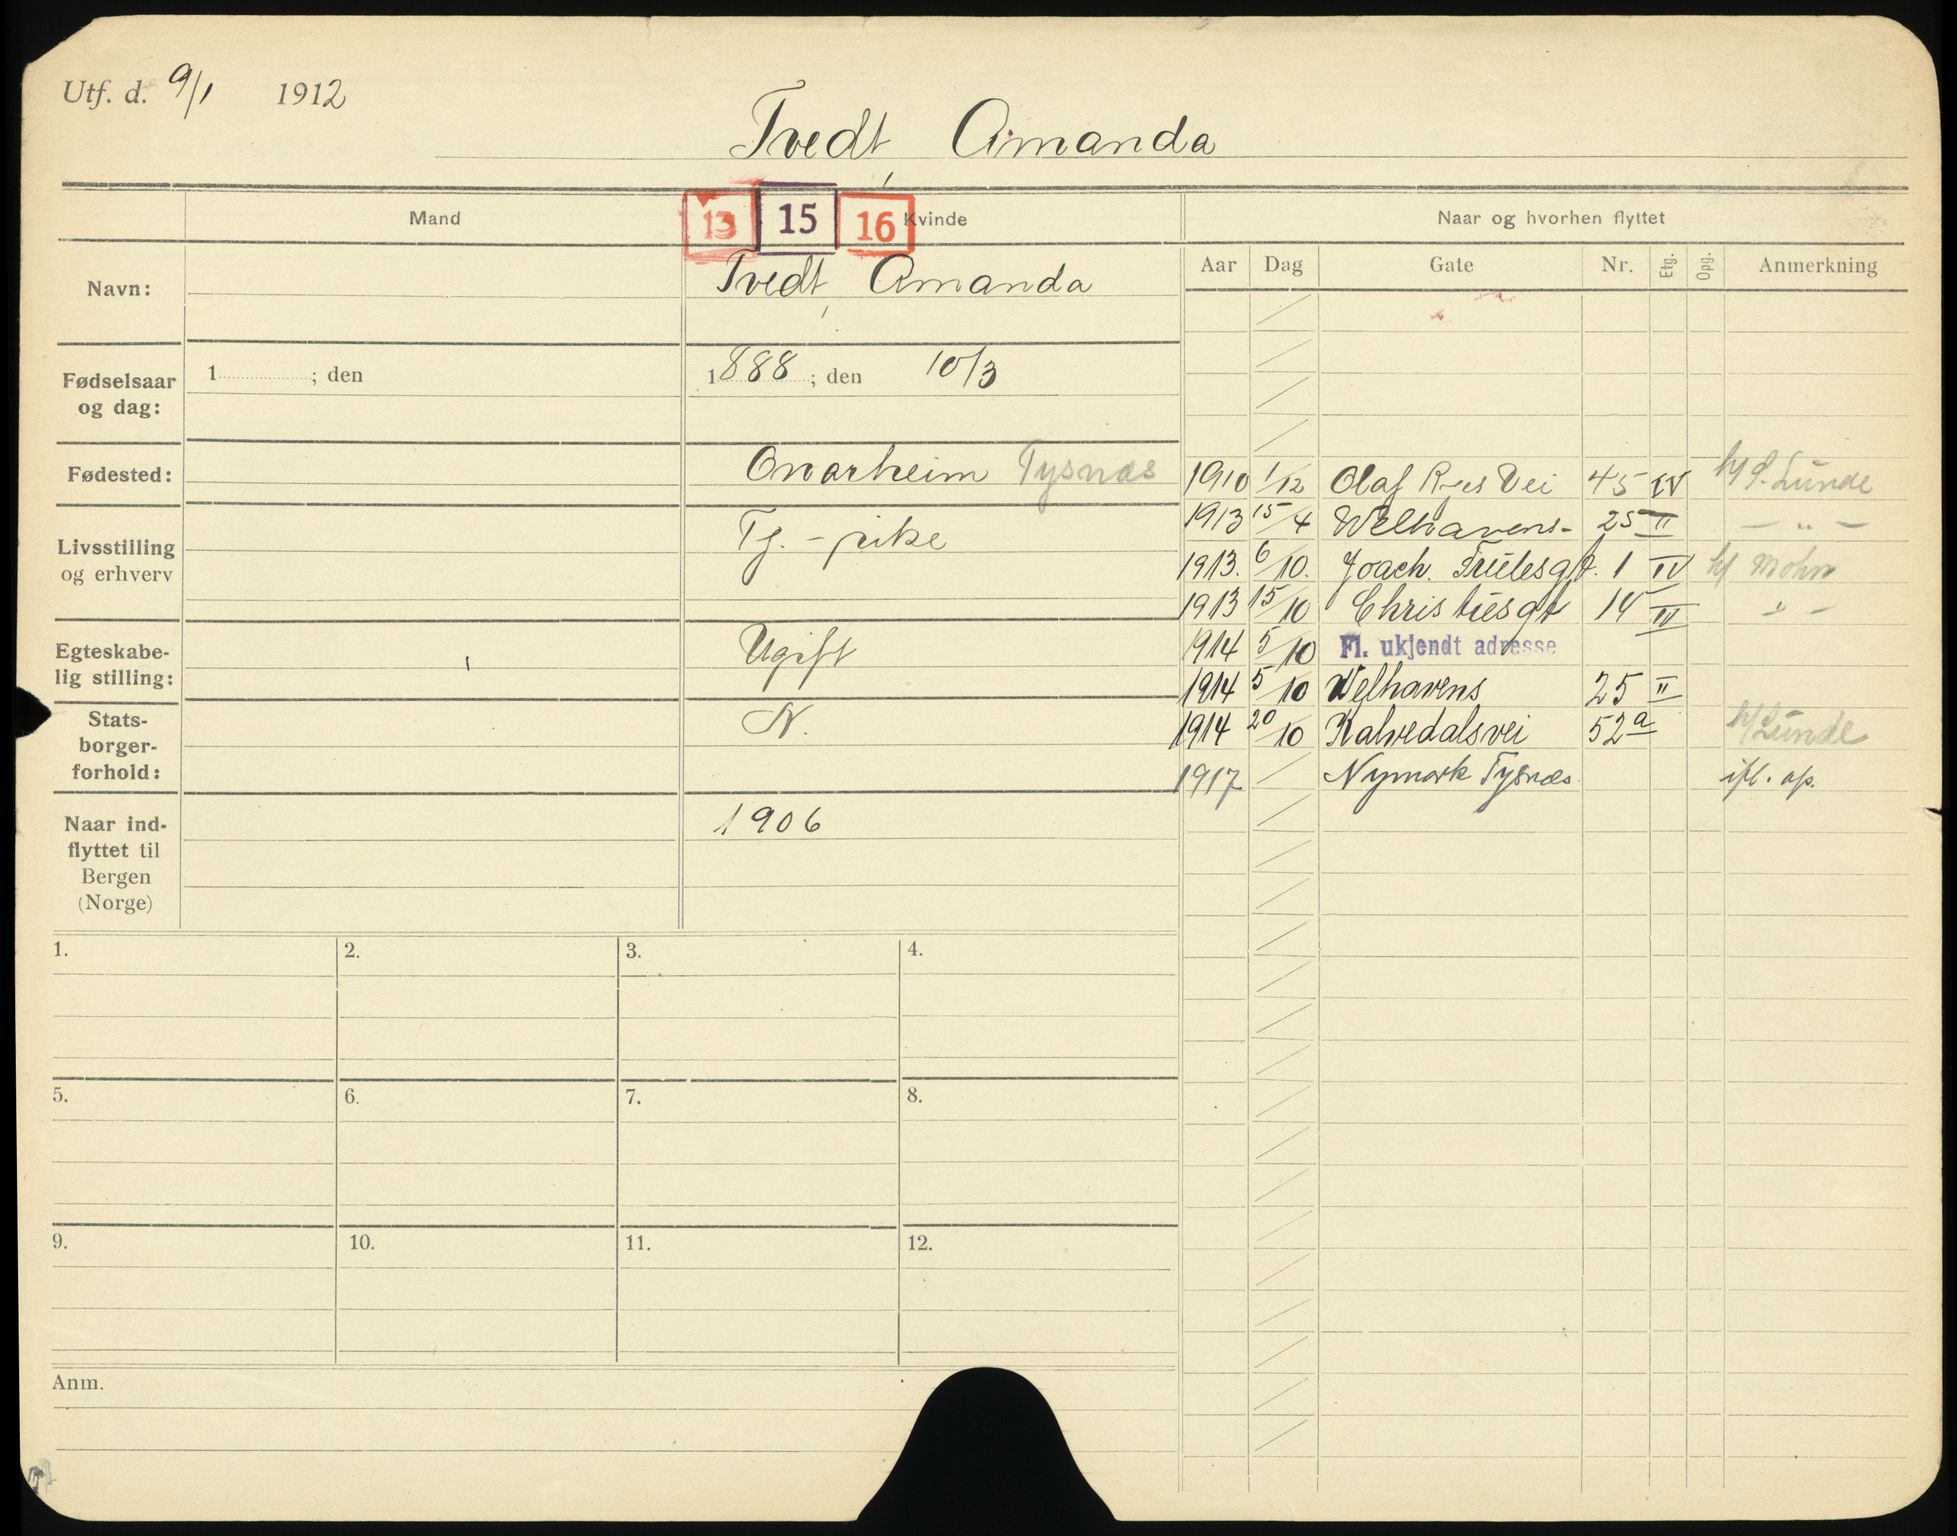 Utf. d. 9/1 1912
Tvedt, Amanda
Mand
13 15 16
Kvinde
Naar og hvorhen flyttet
Aar Dag Gate Nr. Etg. Opg. Anmerkning
Navn:
Tvedt, Amanda
Fødselsaar
og dag:
1 ; den
1888 ; den 10/3
Fødested:
Onarheim Tysnæs
Livsstilling
og erhverv
Tj.-pike
Egteskabe-
lig stilling:
Ugift
Stats-
borger-
forhold:
N.
Naar ind-
flyttet til
Bergen
(Norge)
1906
1910 1/12 Olaf Ryes Vei 45 IV h/ Lunde
1913 15/4 Welhavens- 25 II — " —
1913. 6/10. Joach. Frielesgt. 1 IV h/ Mohn
1913 15/10 Christiesgt 14 III " —
1914 5/10 Fl. ukjendt adresse
1914 5/10 Welhavens 25 II
1914 20/10 Kalvedalsvei 52a h/ Lunde
1917 Nymark Tysnæs ifl. op.
1. 2. 3. 4.
5. 6. 7. 8.
9. 10. 11. 12.
Anm.